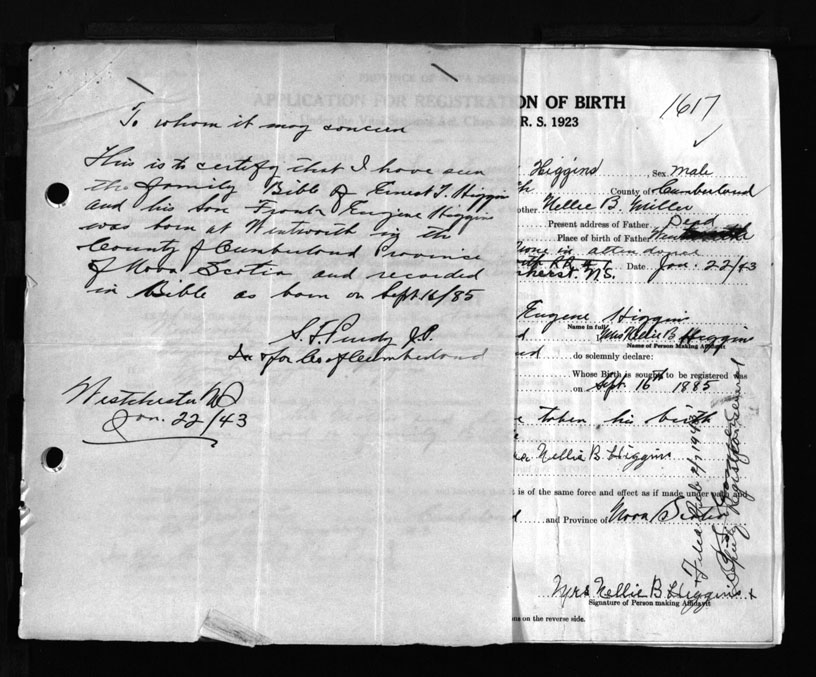 To whom it may concern
This is to certify that I have seen
the family Bible of Ernest T. Higgin
and his son Frank Eugene Higgin
was born at Wentworth in the
County of Cumberland Province
of Nova Scotia and recorded
in Bible as born on Sept 16/85
S. F. Purdy J.P.
for Co of Cumberland
Westchester
Jan. 22/43
PROVINCE OF NOVA SCOTIA
APPLICATION FOR REGISTRATION OF BIRTH
Under the Vital Statistics Act, Chap. R. S. 1923
1617
Higgins Sex Male
County of Cumberland
other Nellie B. Miller
Present address of Father Dead
Place of birth of Father
None in attendance
Amherst. N.S. Date Jan. 22/43
Eugene Higgin
Name in full
Mrs Nellie B Higgin
Name of Person Making Affidavit
do solemnly declare:
Whose Birth is sought to be registered was
on Sept. 16th 1885
taken his birth
Nellie B. Higgins
t is of the same force and effect as if made under oath and
and Province of Nova Scotia
Mrs Nellie B Higgins
Signature of Person making Affidavit
ns on the reverse side.
Deputy Registrar General